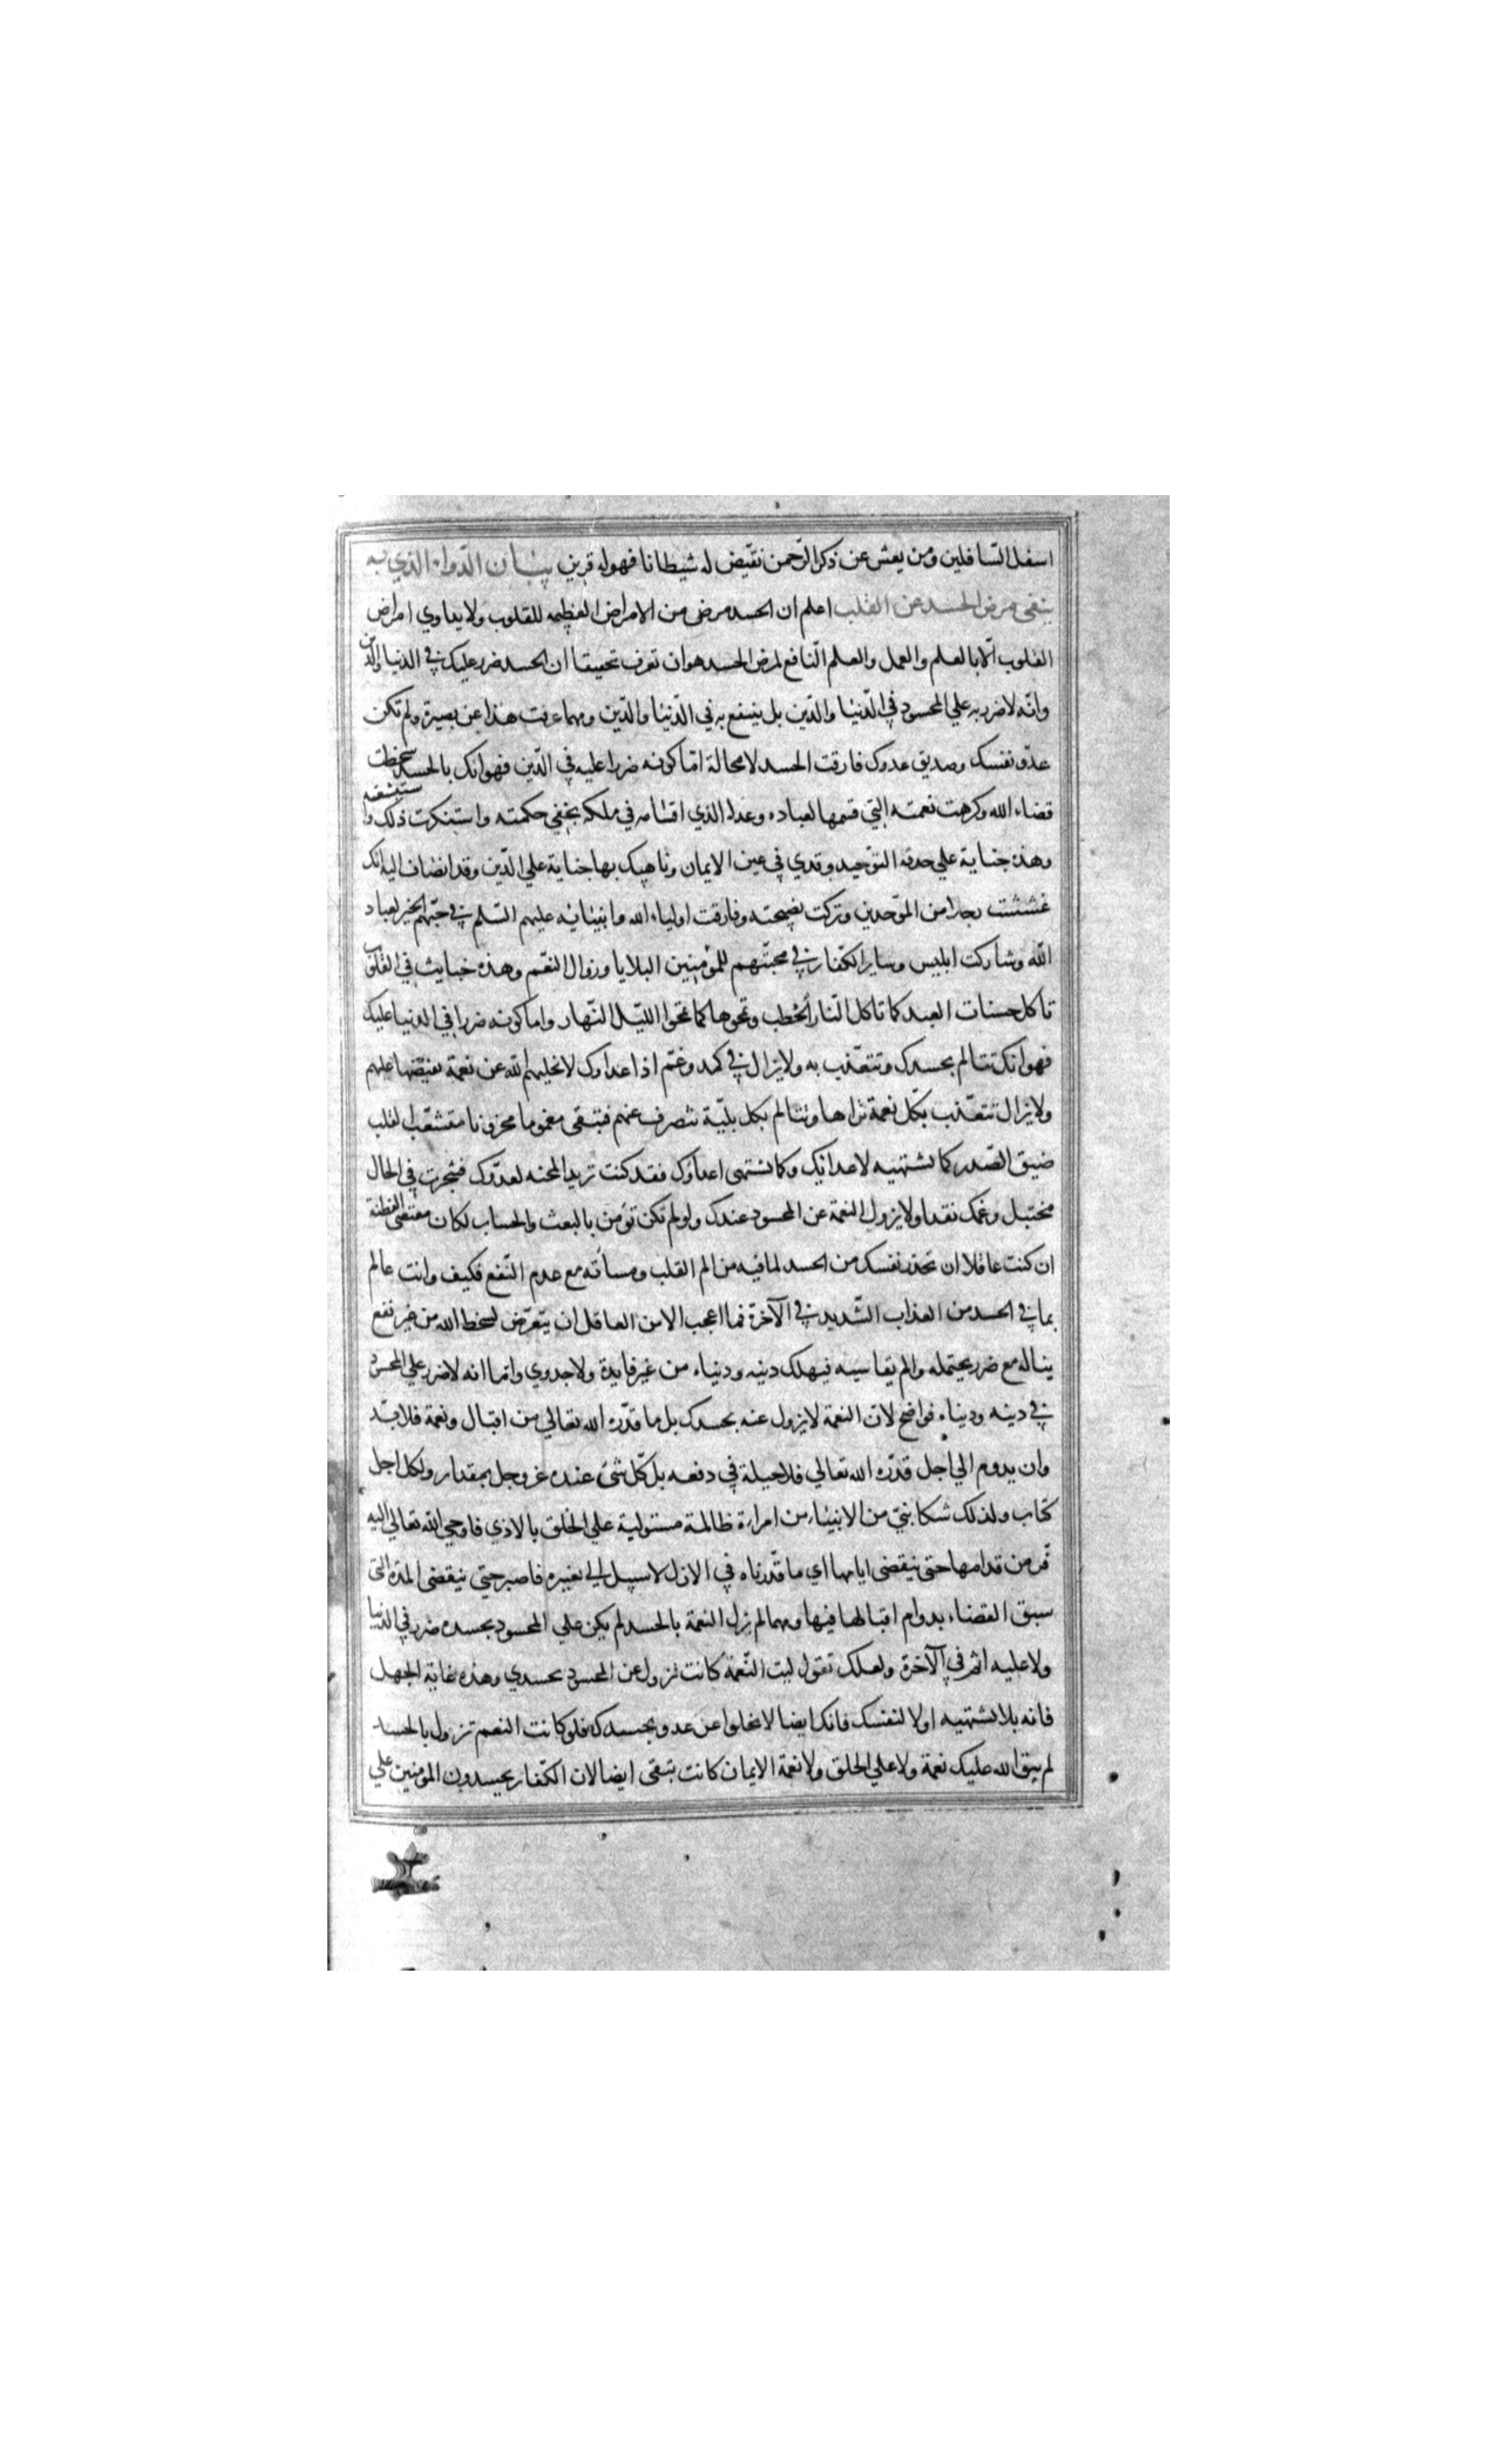 اسفل السّافلين ومن يعش عن ذكر الرّحمن نقيّض له شيطانا فهو له قرين بيان الدّواء الذي به
ينفى مرض الحسد عن القلب اعلم ان الحسد مرض من الامراض العظيمه للقلوب ولا يداوي امراض
القلوب الّا بالعلم والعمل والعلم النّافع لمرض الحسد هو ان تعرف تحقيقا ان الحسد ضرر عليك في الدنيا والدّين
وانّه لا ضرر به علي المحسود في الدّنيا والدّين بل ينتفع به في الدّنيا والدّين ومهما عرفت هذا عن بصيرة ولم تكن
عدّو نفسك وصديق عدوك فارقت الحسد لا محالة امّا كونه ضررا عليه في الدّين فهو انك بالحسد سخطت
قضاء الله وكرهت نعمته التي قسمها لعباده وعدله الذي اقامه في ملكه بخفي حكمته واستنكرت ذلك واستبشعته
وهذه جناية علي حدقة التوّحيد وقذي في عين الايمان وناهيك بها جناية علي الدّين وقد انضاف اليه انّك
غششت رجلا من الموّحدين وتركت نصيحته وفارقت اولياء الله وانبيائه عليهم السّلم في حبّهم الخير لعباد
الله وشاركت ابليس وساير الكفّار في محبّتهم للمؤمنين البلايا وزوال النعّم وهذه خبايث في القلوب
تاكل حسنات العبد كما تاكل النّار الحطب وتمحوها كما تمحوا الليّل النّهار واما كونه ضررا في الدنيا عليك
فهو انك تتالم بحسدك وتتعّذب به ولا يزال في كمد وغمّ اذ اعداوك لا يخليهم الله عن نعمة يفيضها عليهم
ولا يزال تتعّذب بكّل نعمة تراها وتتالم بكل بليّة تنصرف عنهم فتبقى مغموما محزونا متشعّب القلب
ضيق الصّدر كما تشتهيه لاعدائك وكما تشتهى اعداؤك فقد كنت تريد المحنه لعدّوك فتنجزت في الحال
محنتك وغمك نقدا ولا يزول النعمة عن المحسود عندك ولو لم تكن تؤمن بالبعث والحساب لكان مقتضى الفطنة
ان كنت عاقلا ان تحذر نفسك من الحسد لما فيه من الم القلب ومساته مع عدم النّفع فكيف وانت عالم
بما في الحسد من العذاب الشّديد في الآخرة فما اعجب الامن العاقل ان يتعرّض لسخط الله من غير نفع
يناله مع ضرر يحتمله والم يقاسيه فيهلك دينه ودنياه من غير فايدة ولا جدوي وامّا انه لا ضرر علي المحسود
في دينه ودنياه فواضح لانّ النعمة لا يزول عنه بحسدك بل ما قدّره الله تعالي من اقبال ونعمة فلا بّد
وان يدوم الي اجل قدّره الله تعالي فلا حيلة في دفعه بل كّل شئ عنده عز وجل بمقدار ولكل اجل
كتاب ولذلك شكا نبيّ من الانبياء من امراة ظالمة مستولية علي الخلق بالاذي فاوحي الله تعالي اليه
فّر من قدامها حتى ينقضى ايامها اي ما قدّرناه في الازل لا سبيل الي تغييره فاصبر حتى ينقضى المدة التى
سبق القضاء بدوام اقبالها فيها ومهما لم يزل النعمة بالحسد لم يكن علي المحسود بحسده ضرر في الدّنيا
ولا عليه اثم في الآخرة ولعلك تقول ليت النّعمة كانت تزول عن المحسود بحسدي وهذه غاية الجهل
فانه بلا تشتهيه اولا لنفسك فانك ايضا لا تخلوا عن عدو يحسدك فلو كانت النعم تزول بالحسد
لم يبق الله عليك نعمة ولا علي الخلق ولا نعمة الايمان كانت تبقى ايضا لان الكفّار يحسدون المؤمنين علي